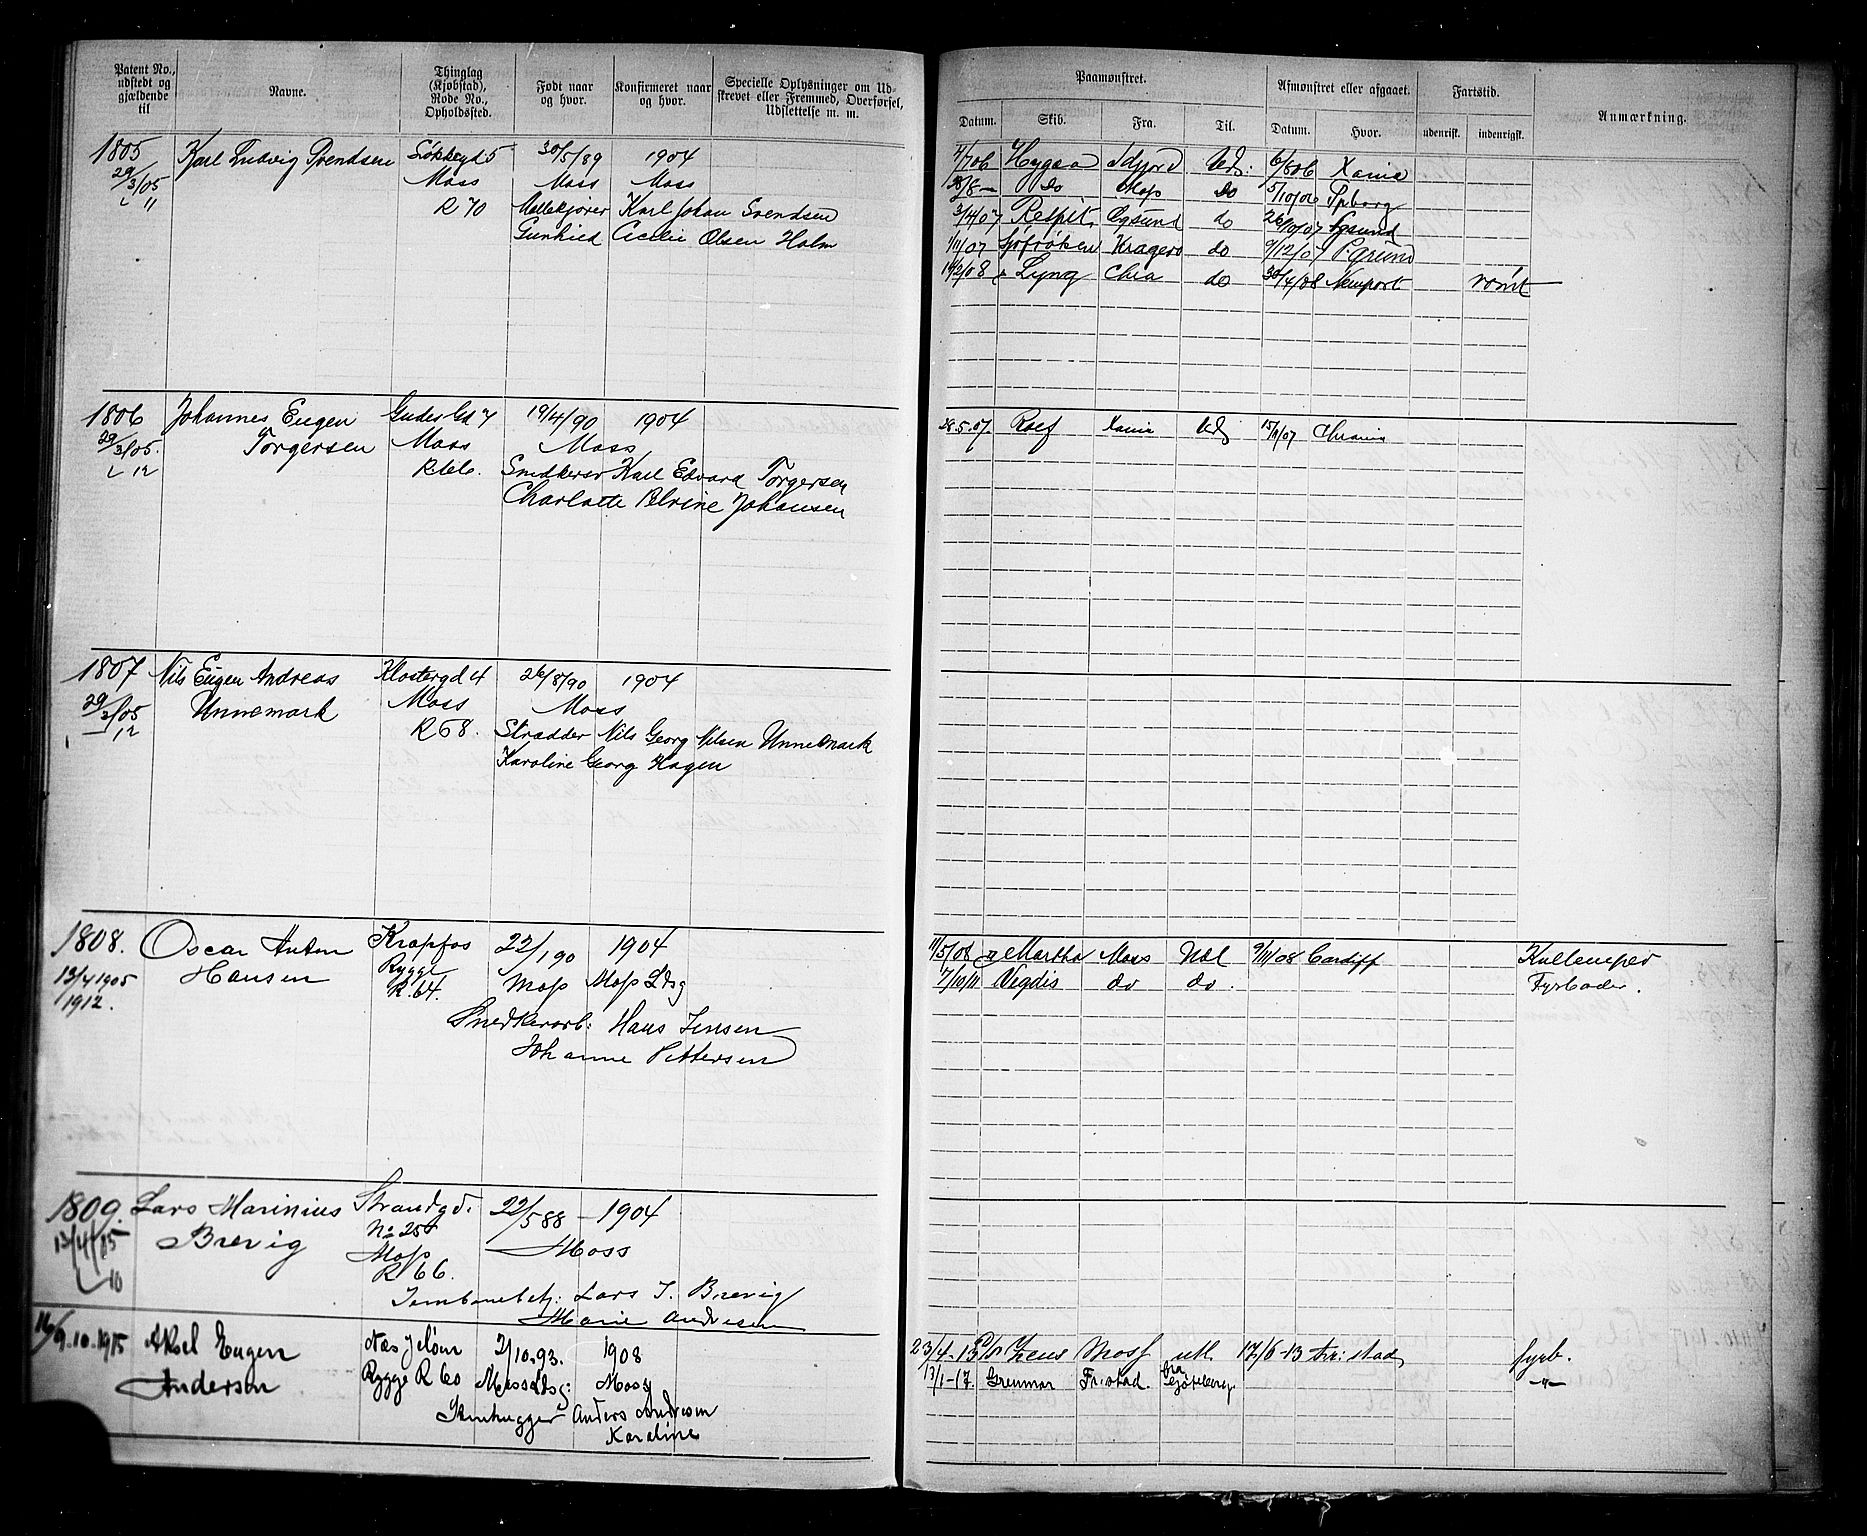 Patent No., udstedt og gjældende til
Navne.
Thinglag (Kjøbstad), Rode No., Opholdssted.
Født naar og hvor.
Konfirmeret naar og hvor.
Specielle Oplysninger om Udskrevet eller Fremmed, Overførsel, Udslettelse m. m.
Paamønstret.
Afmønstret eller afgaaet.
Fartstid.
Anmærkning.
Datum. Skib. Fra. Til. Datum. Hvor. udenrigst. indenrigst.
1805 Karl Ludvig Svendsen 30/5/89 1904
29/3/05 Moss Moss Moss
" R 70 Karl Johan Svendsen
Gunhild Cecilie Olsen Holm
4/7 06 Uds: 6/8 06 Xania
Do Moss Do 5/10/06
3/4 07 Respit Egsund do 26/10/07 Egsund
1/11/07 Kragerø do 9/12/07 P.grund
14/2/08 Lyng Chia do 30/4/08 Newport rømt
1806 Johannes Eugen 19/4/90 1904
29/3/05. Torgersen Moss Moss
12 R 66. Karl Edvard Torgersen
Charlotte Johansen
28.5.07. Xania Uds 15/9/07 Chrania
1807 Nils Eugen Andreas Klostergd 4 26/8/90 1904
29/3/05 Unnemark Moss Moss
12 R 68. Skrædder Nils Georg Nilsen Unnemark
Karoline Georg Hagen
1808. Oscar Anton Krapfos 22/1 90 1904
13/4 1905 Hansen Rygge Moss Moss Ldsg
1912. R. 64.
Snedkerarb: Hans Jensen
Johanne Pettersen
11/5/08 Martha Moss Udl 9/11/08 Cardiff Kullemper
7/10/11 Vegdis do do. Fyrbøder.
1809. Lars Marinius Strandgd. 22/5 88 – 1904
13/4/05 Brevig No 25 Moss
10 Moss
R 66.
Lars J. Brevig
Marie Andresen
9.10.1915 Aksel Eugen Næs Jeløen 2/10.93. 1908
Andersen Rygge R 60 Moss Ldsg: Moss
Stenhugger Anders Andresen
Karoline
23/4-13 Zeus Moss utl. 17/6-13 Fr:stad fyrb.
13/1-17. Grenmar Fr.stad. Gøteborg -"-